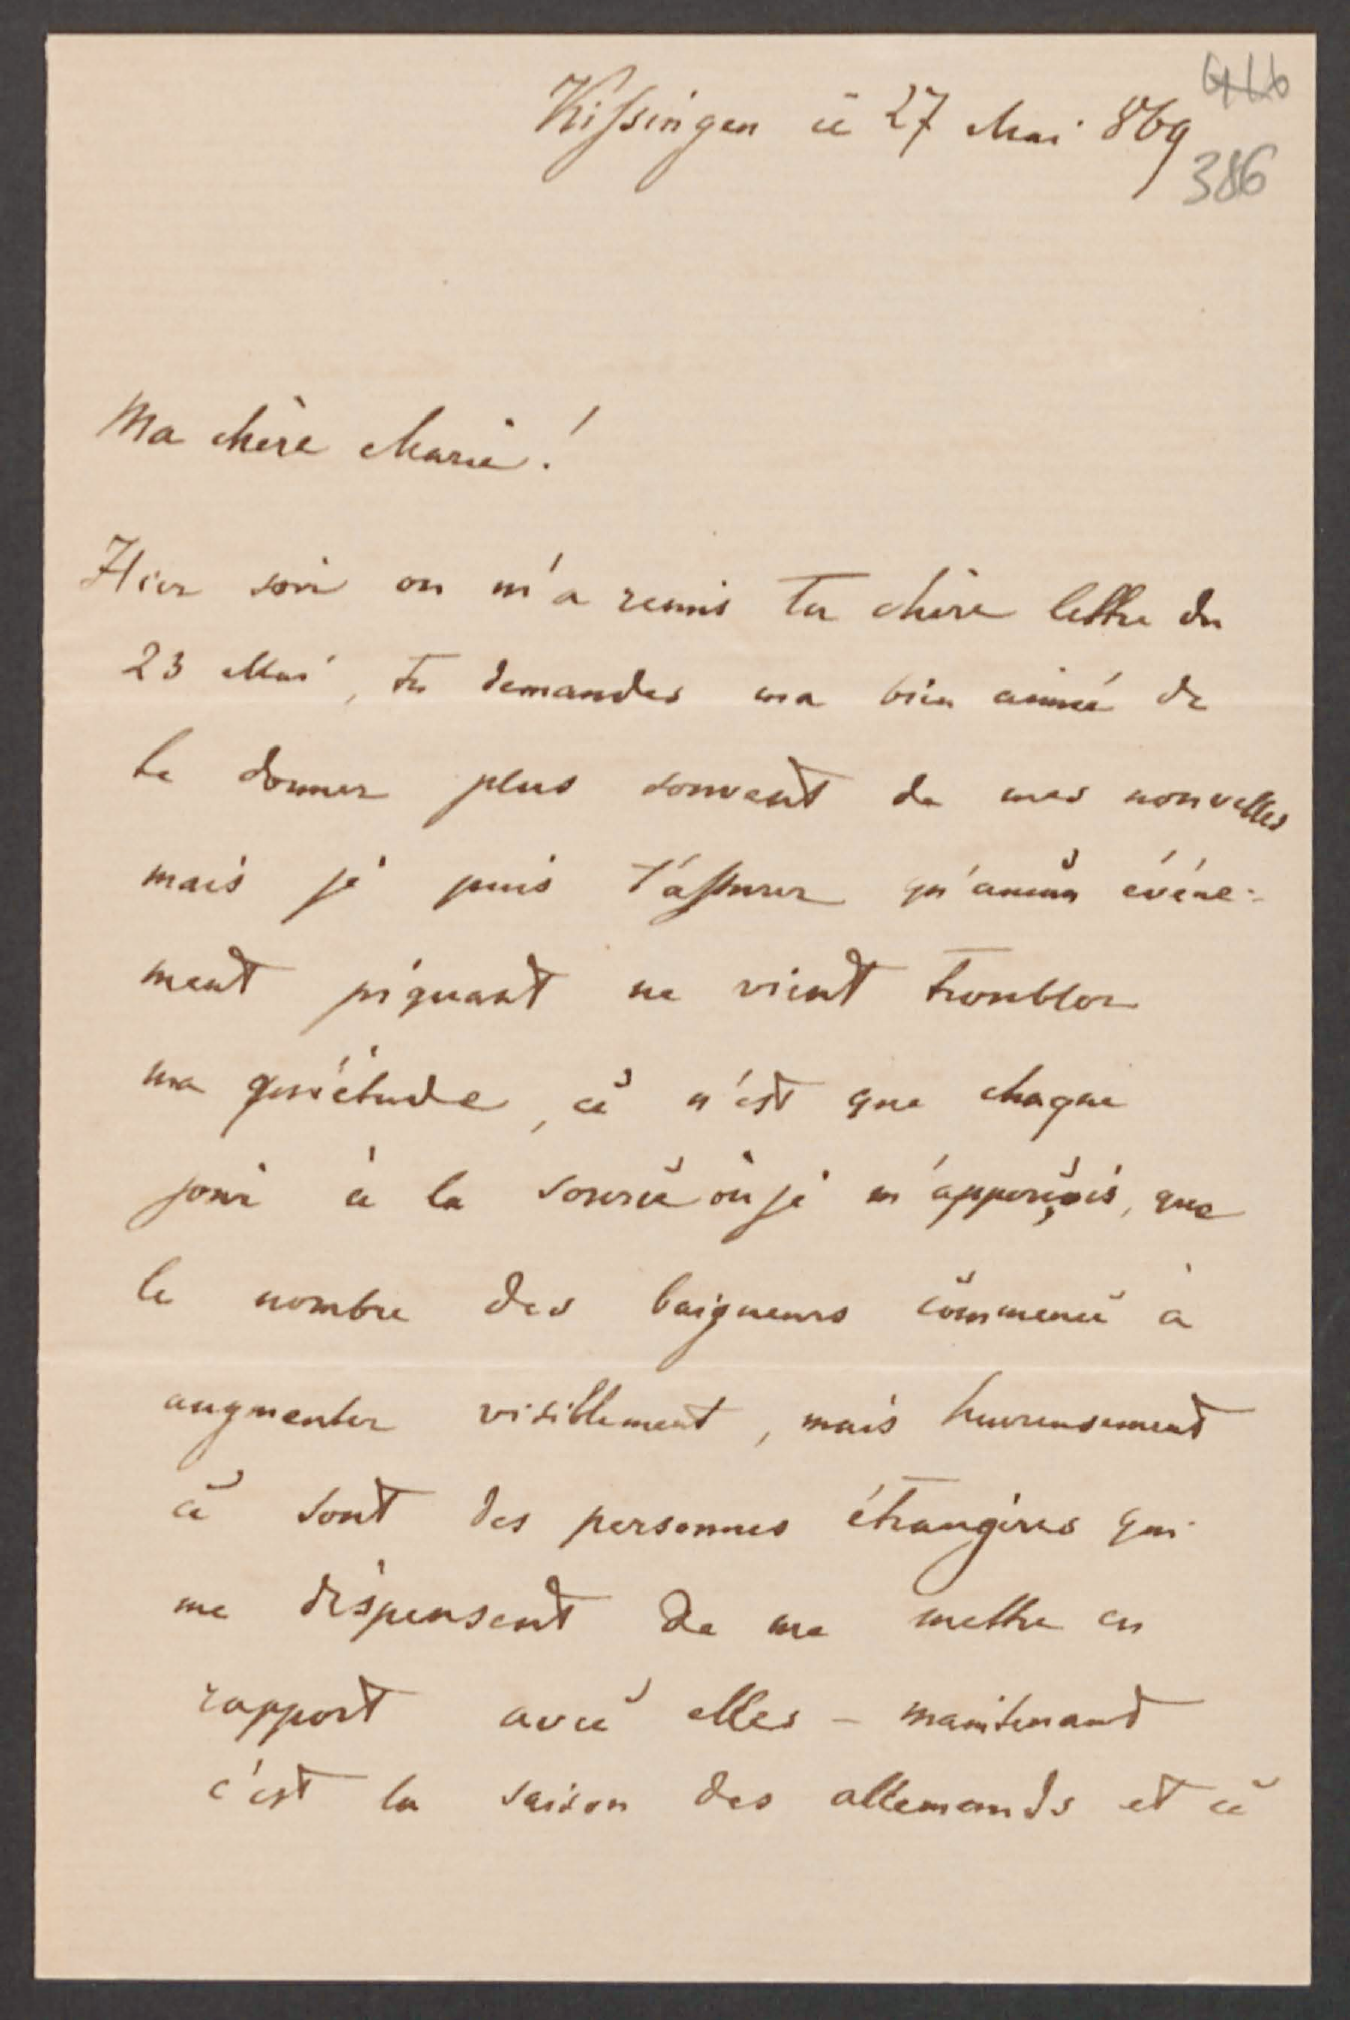 Kissingen ce 27 Mai 869
386
Ma chère Marie!
Hier soir on m'a remis Ta chère lettre du
23 Mai, tu demandes ma bien aimée de
te donner plus souvent de mes nouvelles
mais je puis t'assurer qu'aucun événe-
ment piquant ne vient troubler
ma quiétude, ce n'est que chaque
jour à la source où je m'apperçois, que
le nombre des baigneurs commence à
augmenter visiblement, mais heureusement
ce sont des personnes étrangères qui
me dispensent de me mettre en
rapport avec elles – maintenant
c'est la saison des allemands et ce